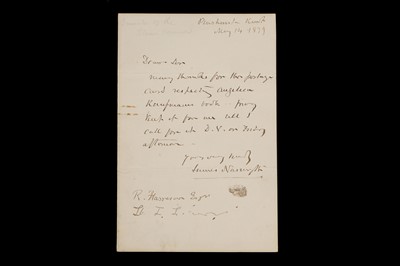 Penshurst Kent
May 14 1879
Dear Sir
many thanks for the postage
card respecting Angelica
Kaufmann's book - pray
keep it for me till I
call for it D.V. on Friday
afternoon -
Yours very truly
James
R. Harrison Esqr